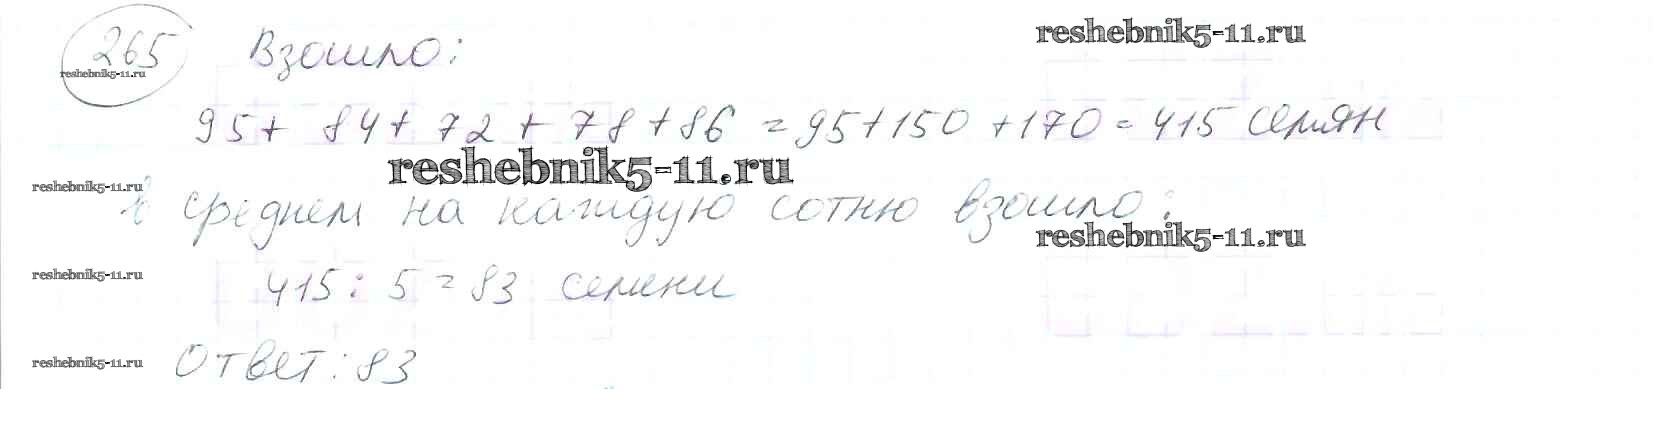 reshebnik5-11.ru
265 Взошло:
reshebnik5-11.ru
95+ 84+ 72 + 78 + 86 = 95+150 +170 = 415 семян
reshebnik5-11.ru
reshebnik5-11.ru
В среднем на каждую сотню взошло:
reshebnik5-11.ru
reshebnik5-11.ru
415 : 5 = 83 семени
reshebnik5-11.ru
Ответ: 83